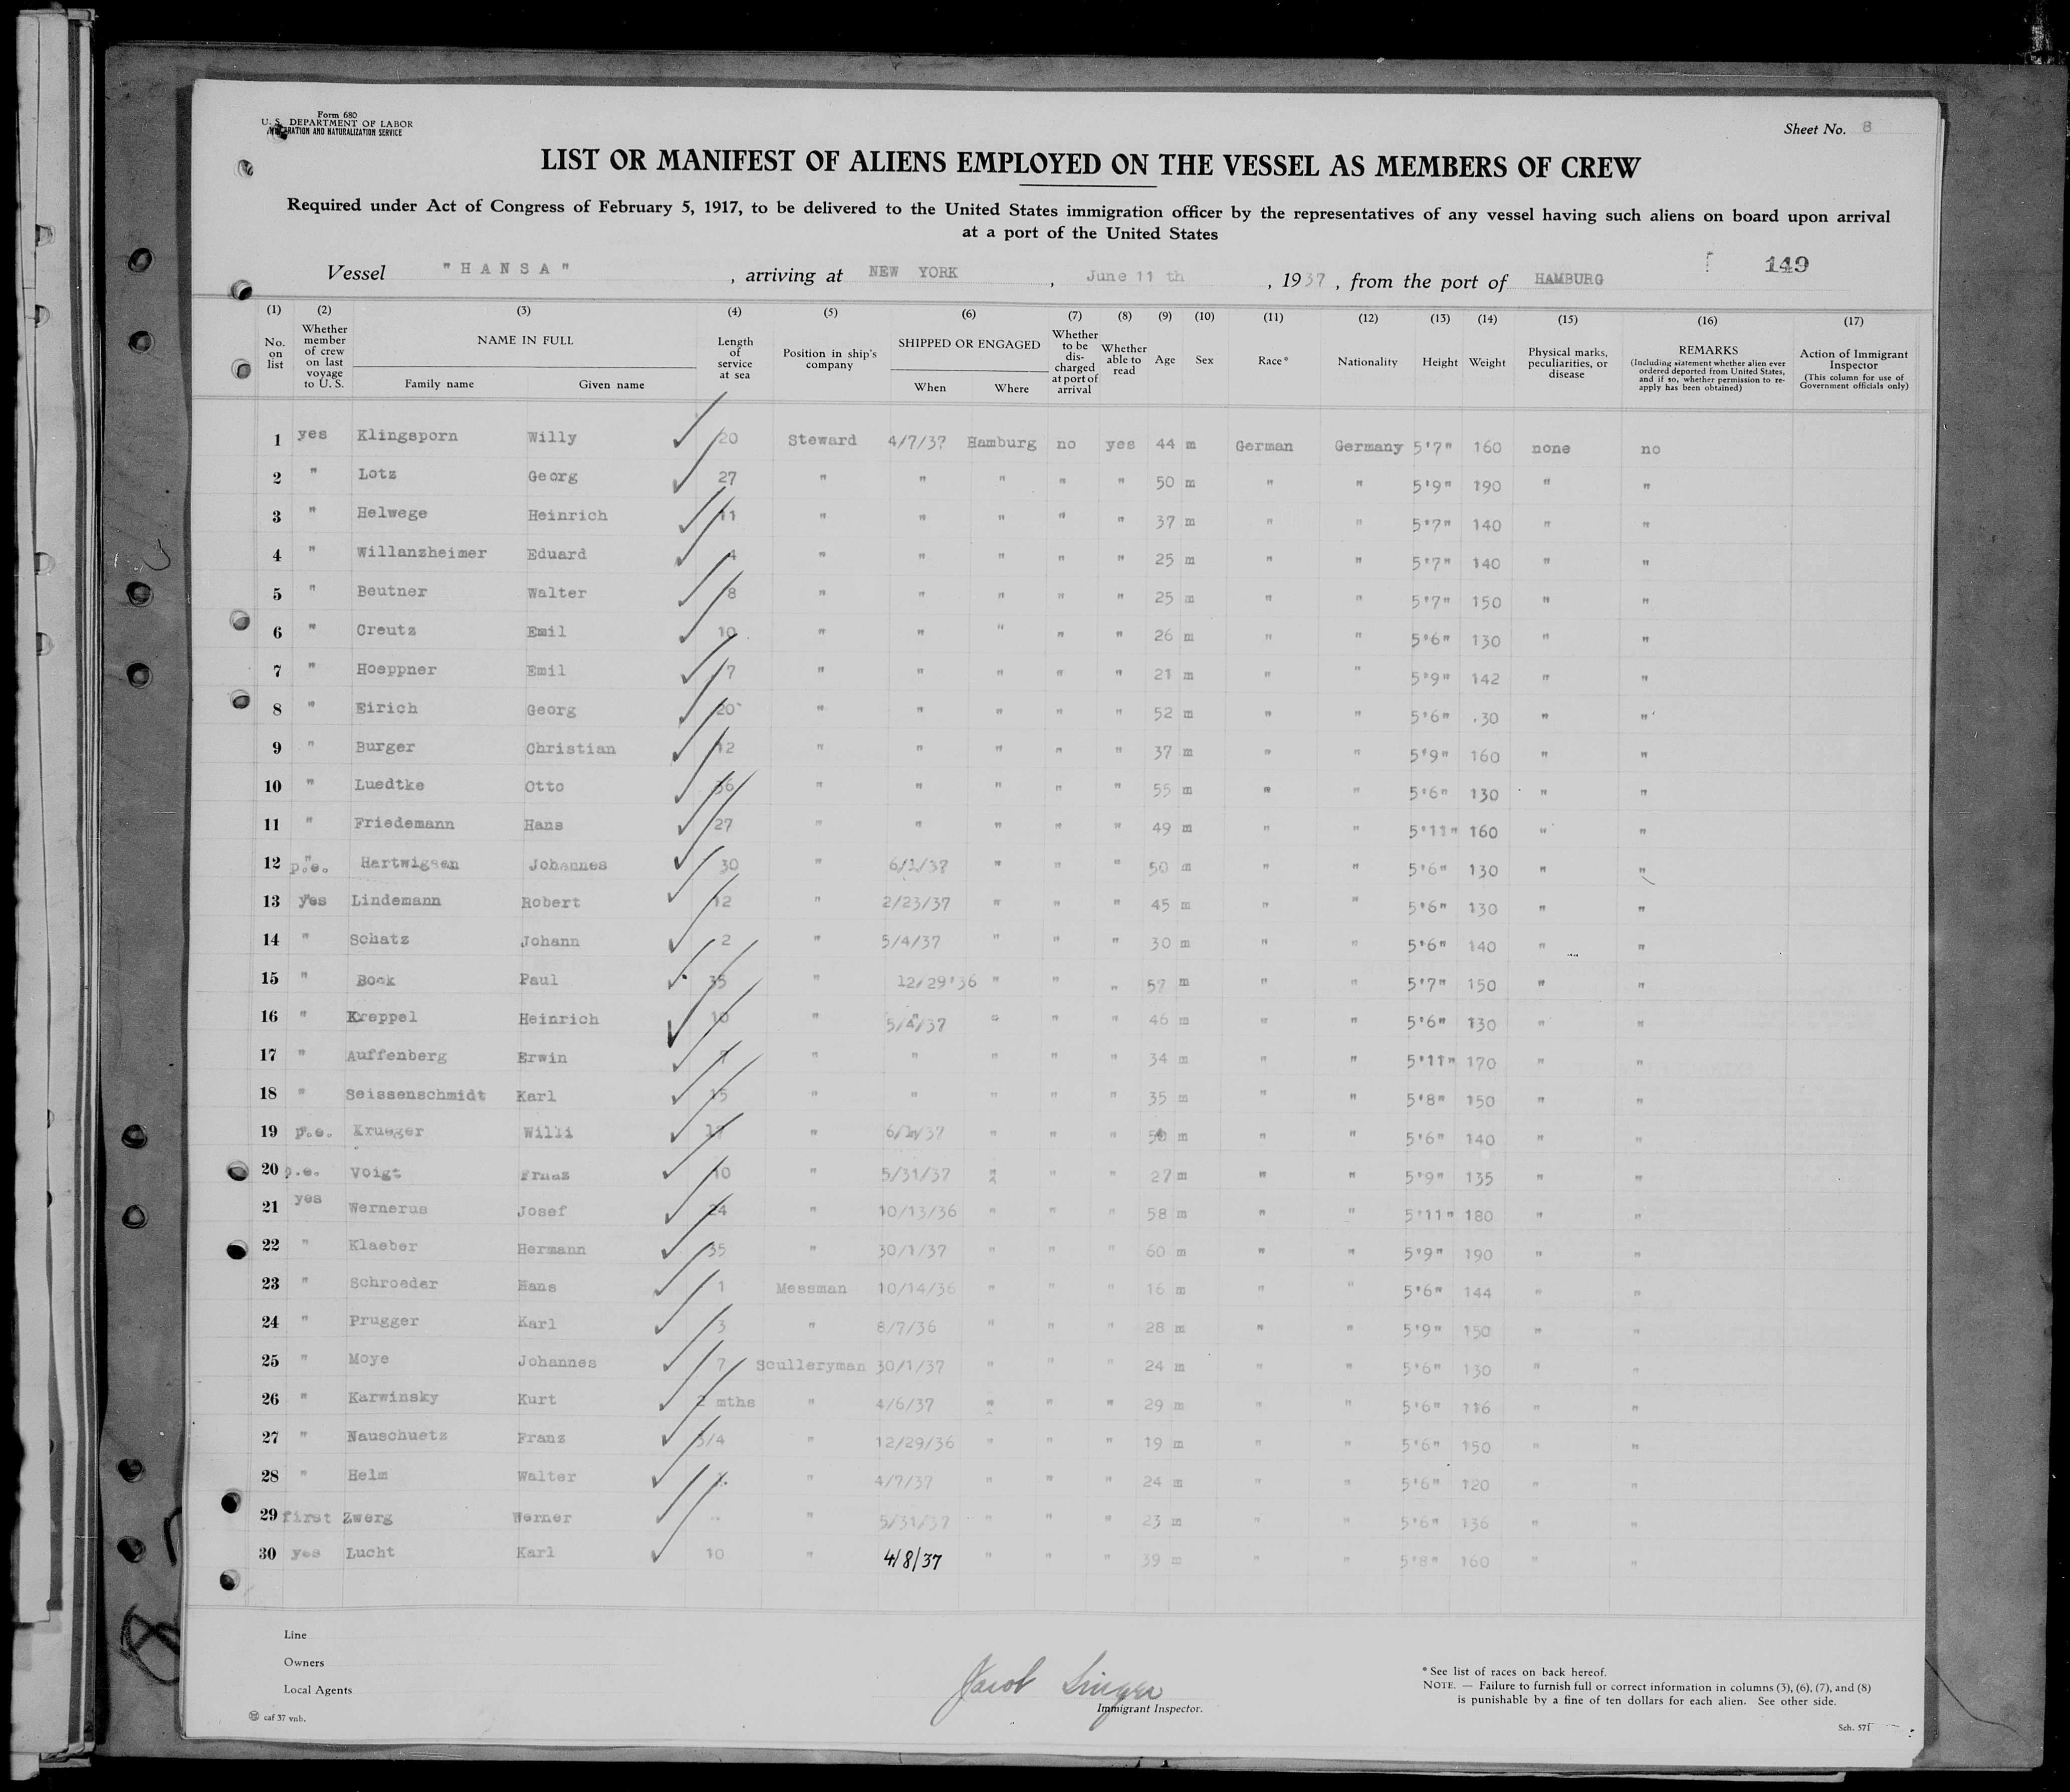 Form 680
U. S. DEPARTMENT OF LABOR
IMMIGRATION AND NATURALIZATION SERVICE
Sheet No. 8
LIST OR MANIFEST OF ALIENS EMPLOYED ON THE VESSEL AS MEMBERS OF CREW
Required under Act of Congress of February 5, 1917, to be delivered to the United States immigration officer by the representatives of any vessel having such aliens on board upon arrival
at a port of the United States
149
Vessel "HANSA" , arriving at NEW YORK , June 11 th , 1937 , from the port of HAMBURG
(1) (2) (3) (4) (5) (6) (7) (8) (9) (10) (11) (12) (13) (14) (15) (16) (17)
No. on list Whether member of crew on last voyage to U. S. NAME IN FULL Family name Given name Length of service at sea Position in ship's company SHIPPED OR ENGAGED When Where Whether to be discharged at port of arrival Whether able to read Age Sex Race* Nationality Height Weight Physical marks, peculiarities, or disease REMARKS (Including statement whether alien ever ordered deported from United States, and if so, whether permission to reapply has been obtained) Action of Immigrant Inspector (This column for use of Government officials only)
1 yes Klingsporn Willy 20 Steward 4/7/37 Hamburg no yes 44 m German Germany 5'7" 160 none no
2 " Lotz Georg 27 " " " " " 50 m " " 5'9" 190 " "
3 " Helwege Heinrich 11 " " " " " 37 m " " 5'7" 140 " "
4 " Willanzheimer Eduard 4 " " " " " 25 m " " 5'7" 140 " "
5 " Beutner Walter 8 " " " " " 25 m " " 5'7" 150 " "
6 " Creutz Emil 10 " " " " " 26 m " " 5'6" 130 " "
7 " Hoeppner Emil 7 " " " " " 21 m " " 5'9" 142 " "
8 " Eirich Georg 20 " " " " " 52 m " " 5'6" 30 " "
9 " Burger Christian 12 " " " " " 37 m " " 5'9" 160 " "
10 " Luedtke Otto 36 " " " " " 55 m " " 5'6" 130 " "
11 " Friedemann Hans 27 " " " " " 49 m " " 5'11" 160 " "
12 p.e. Hartwigsen Johannes 30 " 6/1/37 " " " 50 m " " 5'6" 130 " "
13 yes Lindemann Robert 12 " 2/23/37 " " " 45 m " " 5'6" 130 " "
14 " Schatz Johann 2 " 5/4/37 " " " 30 m " " 5'6" 140 " "
15 " Bock Paul 35 " 12/29'36 " " " 57 m " " 5'7" 150 " "
16 " Kreppel Heinrich 10 " 5/4/37 " " " 46 m " " 5'6" 130 " "
17 " Auffenberg Erwin 7 " " " " " 34 m " " 5'11" 170 " "
18 " Seissenschmidt Karl 15 " " " " " 35 m " " 5'8" 150 " "
19 p.e. Krueger Willi 17 " 6/1/37 " " " m " " 5'6" 140 " "
20 p.e. Voigt Franz 10 " 5/31/37 " " " 27 m " " 5'9" 135 " "
21 yes Wernerus Josef 24 " 10/13/36 " " " 58 m " " 5'11" 180 " "
22 " Klaeber Hermann 35 " 30/1/37 " " " 60 m " " 5'9" 190 " "
23 " Schroeder Hans 1 Messman 10/14/36 " " " 16 m " " 5'6" 144 " "
24 " Prugger Karl 3 " 8/7/36 " " " 28 m " " 5'9" 150 " "
25 " Moye Johannes 7 Sculleryman 30/1/37 " " " 24 m " " 5'6" 130 " "
26 " Karwinsky Kurt 2 mths " 4/6/37 " " " 29 m " " 5'6" 116 " "
27 " Nauschuetz Franz 3/4 " 12/29/36 " " " 19 m " " 5'6" 150 " "
28 " Helm Walter " 4/7/37 " " " 24 m " " 5'6" 120 " "
29 first Zwerg Werner - " 5/31/37 " " " 23 m " " 5'6" 136 " "
30 yes Lucht Karl 10 " 4/8/37 " " " 39 m " " 5'8" 160 " "
Line
Owners
Local Agents
Jacob Singer
Immigrant Inspector.
* See list of races on back hereof.
NOTE. — Failure to furnish full or correct information in columns (3), (6), (7), and (8)
is punishable by a fine of ten dollars for each alien. See other side.
caf 37 vnb.
Sch. 571